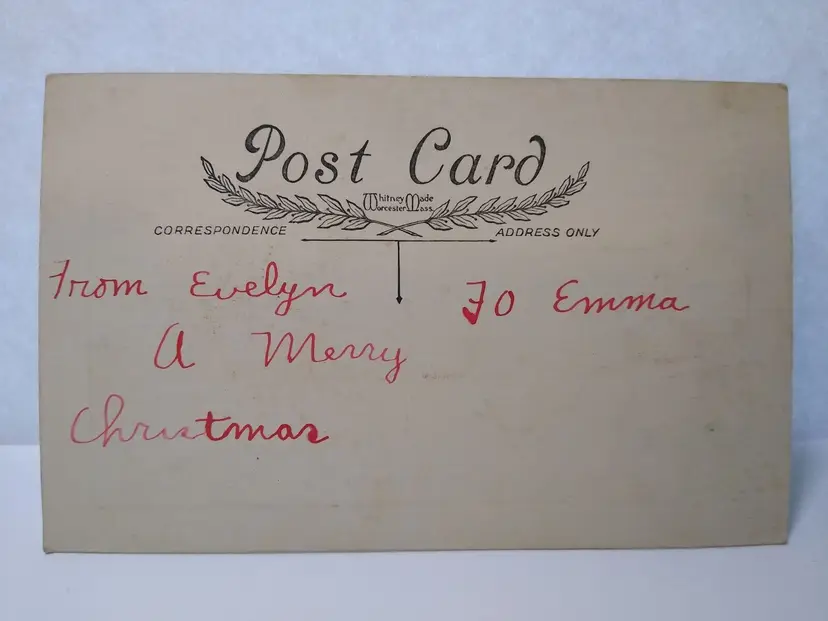 Post Card
Whitney Made
Worcester Mass.
CORRESPONDENCE ADDRESS ONLY
From Evelyn To Emma
A Merry
Christmas